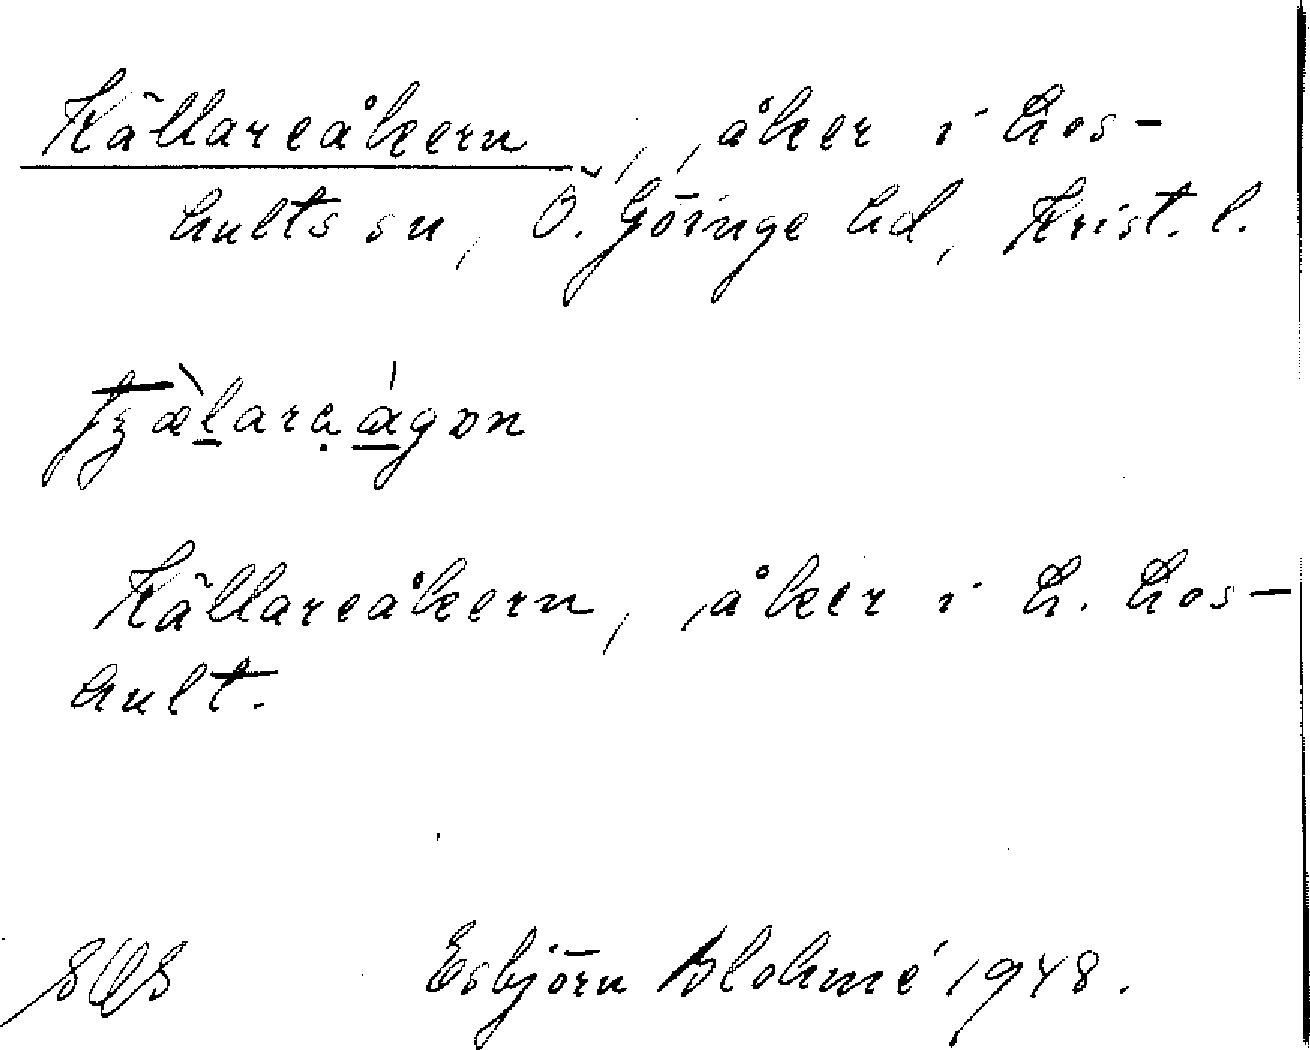 Källareåkern, åker i Los-
hults sn, Ö. Göinge hd, Krist. l.
tʒæ̀laraágɒn
Källareåkern, åker i L. Los-
hult.
Esbjörn Blohmé 1948.